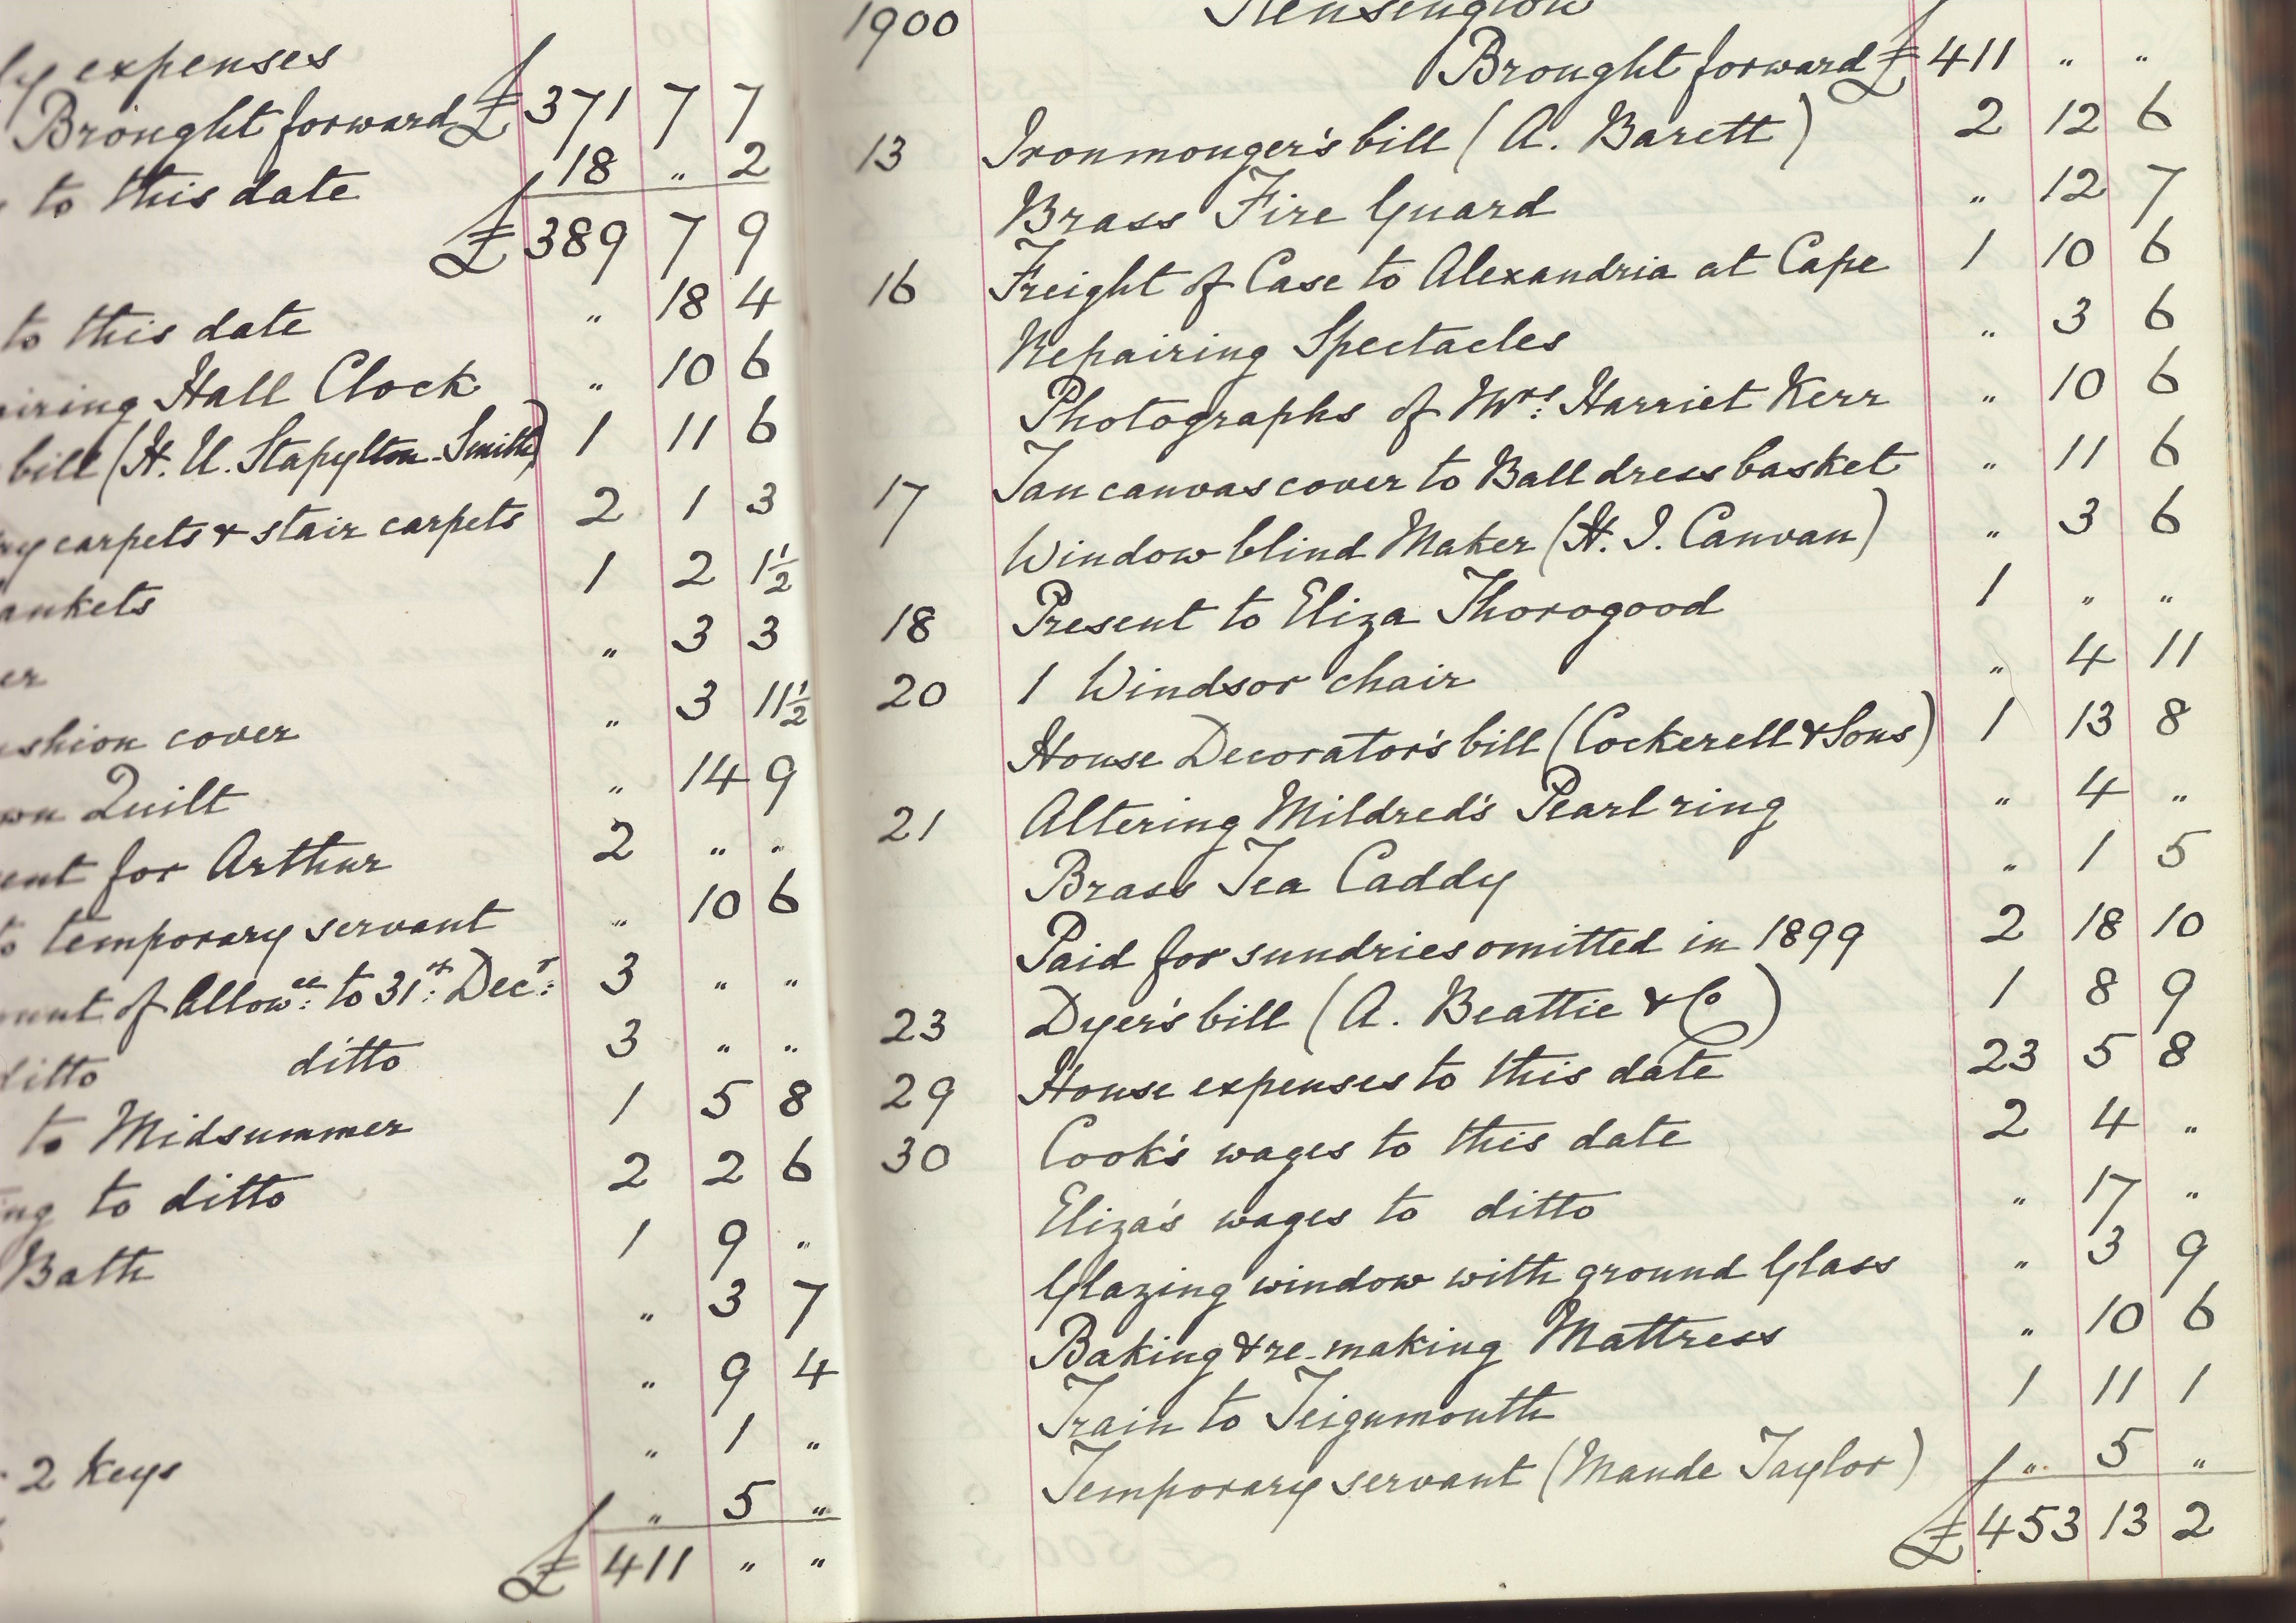 expenses
Brought forward £ 371 7 7
to this date 18 " 2
£ 389 7 9
to this date " 18 4
Hall Clock " 10 6
bill (H. U. Stapylton-Smith) 1 11 6
carpets & stair carpets 2 1 3
1 2 1½
" 3 3
cover " 3 11½
Quilt " 14 9
for Arthur 2 " "
temporary servant " 10 6
of Allowce: to 31st: Decr: 3 " "
ditto ditto 3 " "
to Midsummer 1 5 8
to ditto 2 2 6
Bath 1 9 "
" 3 7
" 9 4
" 1 "
2 keys " 5 "
£ 411 " "
1900 Kensington
Brought forward £ 411 " "
13 Ironmonger's bill (A. Barett) 2 12 6
Brass Fire Guard " 12 7
16 Freight of Case to Alexandria at Cape 1 10 6
Repairing Spectacles " 3 6
Photographs of Mrs: Harriet Kerr " 10 6
17 Tan canvas cover to Ball dress basket " 11 6
Window blind Maker (H. I. Canvan) " 3 6
18 Present to Eliza Thorogood 1 " "
20 1 Windsor chair " 4 11
House Decorator's bill (Cockerell & Sons) 1 13 8
21 Altering Mildred's Pearl ring " 4 "
Brass Tea Caddy " 1 5
Paid for sundries omitted in 1899 2 18 10
23 Dyer's bill (A. Beattie & Co) 1 8 9
29 House expenses to this date 23 5 8
30 Cook's wages to this date 2 4 "
Eliza's wages to ditto " 17 "
Glazing window with ground Glass " 3 9
Baking & re-making Mattress " 10 6
Train to Teignmouth 1 11 1
Temporary servant (Maude Taylor) " 5 "
£ 453 13 2